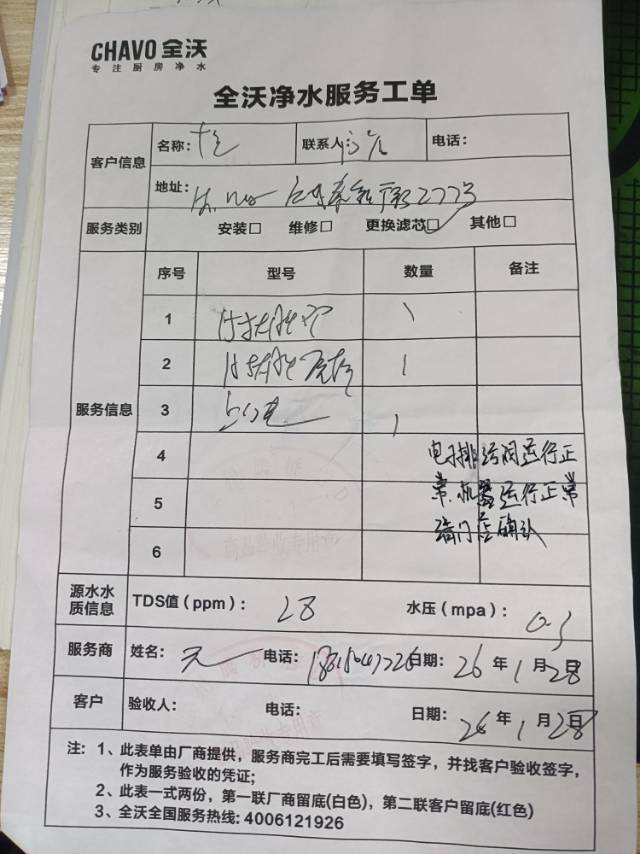 CHAVO 全沃
专注厨房净水
全沃净水服务工单
客户信息
名称:
联系人:
电话:
地址: 2773
服务类别 安装□ 维修□ 更换滤芯□ 其他□
服务信息
序号 型号 数量 备注
1 1
2 1
3 1
4
5
6
电子排污阀运行正
常.机器运行正常
请门店确认
源水水质信息 TDS值(ppm): 28 水压(mpa): 0.3
服务商 姓名: 电话: 日期: 26年1月28日
客户 验收人: 电话: 日期: 26年1月28日
注: 1、此表单由厂商提供,服务商完工后需要填写签字,并找客户验收签字,
作为服务验收的凭证;
2、此表一式两份,第一联厂商留底(白色),第二联客户留底(红色)
3、全沃全国服务热线: 4006121926